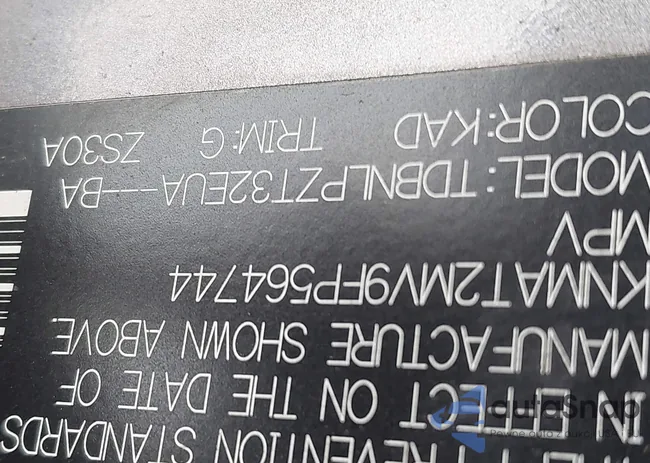 THE PREVENTION STANDARDS
IN EFFECT ON THE DATE OF
MANUFACTURE SHOWN ABOVE.
KNMAT2MV9FP564744
MPV
MODEL:TDBNLPZT32EUA---BA
COLOR:KAD TRIM:G ZS30A
autoSnap